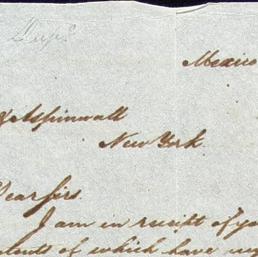 Dup^s
Mexico
& Aspinwall
New York.
Dear sirs.
I am in receipt of yo
of which have